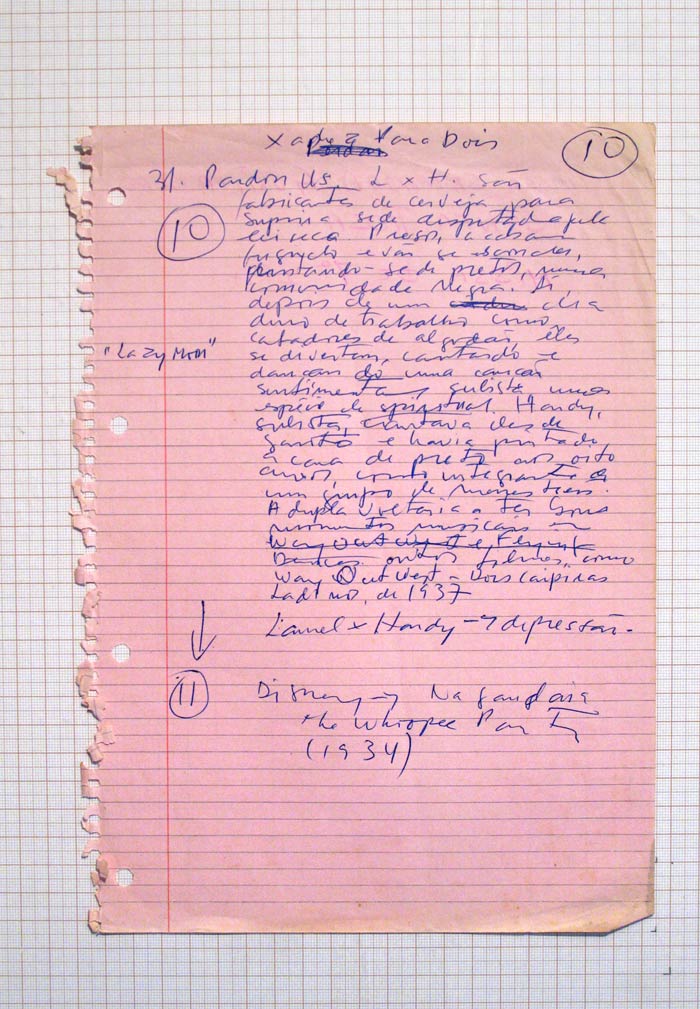 Xadrez Para Dois
10
31. Pardon Us, L x H. são
fabricantes de cerveja para
10
suprir a sede
Presos, acabam
fugindo e vão se esconder,
pintando-se de pretos, numa
comunidade Negra. Aí,
depois de um dia
duro de trabalho como
"Lazy Moon"
catadores de algodão, eles
se divertem, cantando e
dançando uma canção
sentimental sulista uma
espécie de spiritual. Hardy,
sulista, cantava desde
garoto e havia pintado
a cara de preto aos oito
anos, como integrante de
um grupo de menestreis.
A dupla voltaria a ter bons
momentos musicais em
Way Out West e
outros filmes, como
Way Out West - Dois Caipiras
Ladinos, de 1937
Laurel x Hardy → depressão.
11
Disney → Na gandaia
the Whoopee Party
(1934)